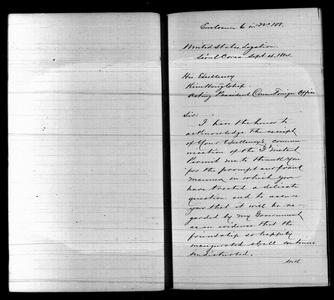 Enclosure 6 in No 105.
United States Legation
Seoul Corea Sept 4, 188
His Excellency
Kim Hong Chip
Acting President Corean Foreign Office
Sir:
I have the honor to
acknowledge the receipt
of Your Excellency's commu
nication of the 3d instant
Permit me to thank you
for the prompt and frank
manner in which you
have treated a delicate
question and to assure
you that it will be re
garded by my Government
as an evidence that the
friendship so happily
inaugurated shall continue
undisturbed.